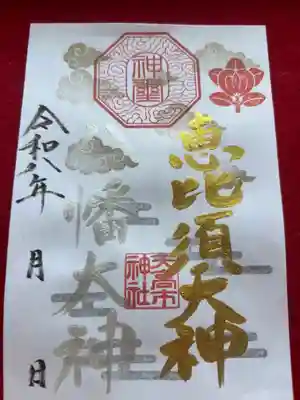 神璽
恵比須大神
八幡大神
神社
令和八年 月 日